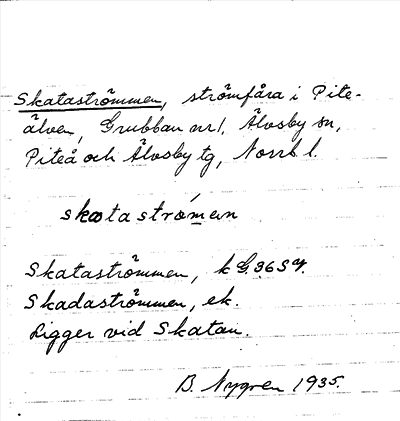 Skataströmmen, strömfåra i Pite-
älven, Grubban nr 1, Älvsby sn,
Piteå och Älvsby tg, Norrb. l.
skatastrǿmen
Skataströmmen, k G. 36 S
Skadaströmmen, ek.
Ligger vid Skatan.
B. Nygren 1935.